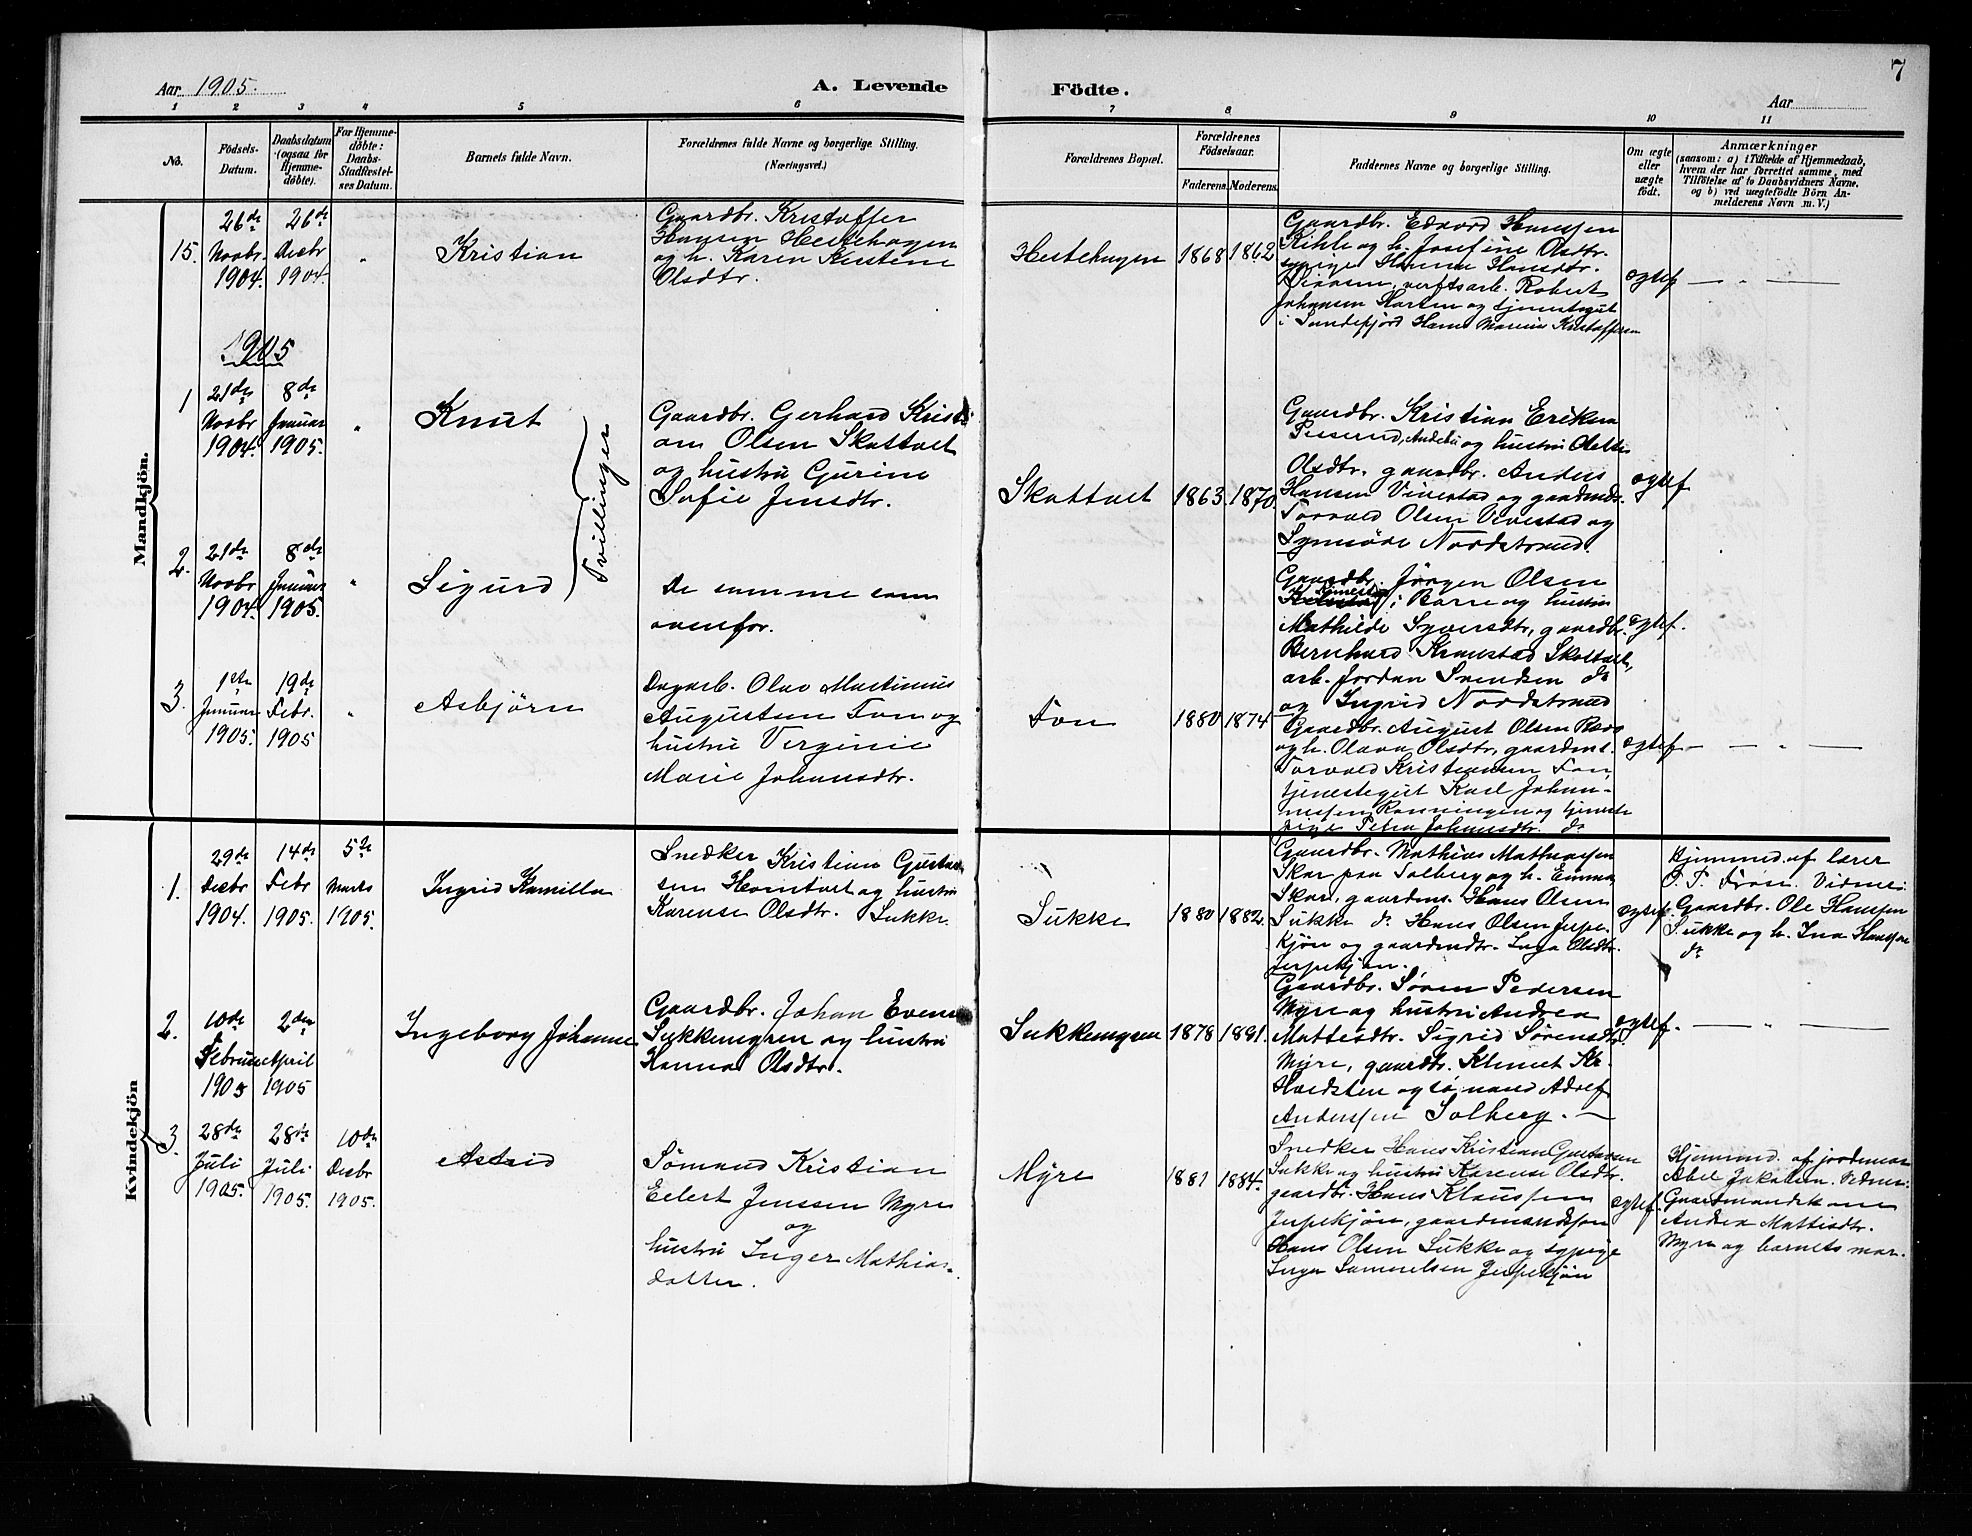 7
Aar 1905.
A. Levende
Födte.
Aar
1 2 3 4 5 6 7 8 9 10 11
No.
Födsels-
Datum.
Daabsdatum
(ogsaa for
Hjemme-
døbte).
For Hjemme-
døbte:
Daabs-
Stadfæstel-
ses Datum.
Barnets fulde Navn.
Forældrenes fulde Navne og borgerlige Stilling.
(Næringsvei.)
Forældrenes Bopæl.
Forældrenes
Födselsaar.
Faderens.
Moderens.
Faddernes Navne og borgerlige Stilling.
Om ægte
eller
uægte
födt.
Anmærkninger
(saasom: a) i Tilfælde af Hjemmedaab,
hvem der har forrettet samme, med
Tilföielse af to Daabsvidners Navne.
og b) ved uægtefödte Börn An-
melderens Navn m. V.)
Mandkjön.
15.
26de
Novbr
1904.
26de
Decbr
1904.
"
Kristian
Gaardbr. Kristoffer
Hansen Hestehagen
og h. Karen Kirstine
Olsdtr.
Hestehagen
1868
1862
Gaardbr. Edvard Hanssen
Kihle og h. Josefine Olsdtr.
sypige Hanna Hansdtr.
verftsarb. Robert
Johansen Horten og tjenestegut
i Sandefjord Hans Marius Kristoffersen
egtef
— " —
1905
1
21de
Novbr
1904.
8de
Januar
1905.
"
Knut
Tvillinger
Gaardbr. Gerhard Kristi
an Olsen Skottvet
og hustru Gurine
Sofie Jensdtr.
Skottvet
1863.
1870.
Gaardbr. Kristian Eriksen
Andebu og hustru
Olsdtr. gaardbr. Anders
Hansen Vivestad og gaardmds.
Torvald Olsen Vivestad og
Synnöve Nordstrand.
egtef
2.
21de
Novbr
1904.
8de
Januar
1905.
"
Sigurd
De samme som
ovenfor.
Gaardbr. Jörgen Olsen
i Borre og hustru
Mathilde Syversdtr, gaardbr.
Bernhard Skottvet,
arb. Jordan Svendsen do
og Ingrid Nordstrand
egtef.
3.
1ste
Januar
1905.
19de
Febr.
1905
"
Asbjörn
Dagarb. Olav Martinius
Augustsen Fon og
hustru Verginie
Marie Johansdtr.
Fon
1880
1874
Gaardbr. August Olsen
og h. Olava Olsdtr, gaardmt.
Torvald Kristiansen Fon,
tjenestegut Karl Johan-
nessen Rønningen og tjeneste
pige Petra Johansdtr. do
egtef
— " —
Kvindekjön
1.
29de
Decbr
1904.
14de
Febr
1905.
5te
Marts
1905.
Ingrid Kamilla
Snedker Kristian Gustav
sen Homtvet og hustru
Karense Olsdtr. Sukke.
Sukke
1880
1882.
Gaardbr. Mathias Mathiassen
Skar paa Solberg og h. Emma
Skar, gaardms. Hans Olsen
Sukke do Hans Olsen Jerpe-
kjön og gaardmdtr. Inga Olsdtr.
Jerpekjön.
egtef.
Hjemmed. af lærer
Vidner:
Gaardbr. Ole Hanssen
Sukke og h. Ina Hanssen
do
2.
10de
Februar
1905
2den
April
1905
"
Ingeborg Johanne
Gaardbr. Johan Evens
Sukkemyren og hustru
Hanna Olsdtr.
Sukkemyren
1878
1881.
Gaardbr. Sören Pedersen
Myre og hustru Andrea
Mattisdtr. Sigrid Sörensdtr.
Myre, gaardbr. Klemet Kr.
Hvidsten og sömand Adolf
Anderssen Solberg. —
egtef.
— " —
3.
28de
Juli
1905.
28de
Juli
1905.
10de
Decbr
1905.
Astrid
Sömand Kristian
Eilert Jenssen Myre
og
hustru Inger Mathias-
datter.
Myre
1881
1884.
Snedker Hans Kristian Gustavsen
Sukke og hustru Karense Olsdtr.
gaardbr. Hans Klaussen
Jerpekjön, gaardmandssön
Hans Olsen Sukke og sypige
Inga Samuelsen Jerpekjön
egtef.
Hjemmed. af jordemor
Abel Jakobsen. Vidner:
Gaardmandskone
Andrea Mattisdtr.
Myre og barnets mor.